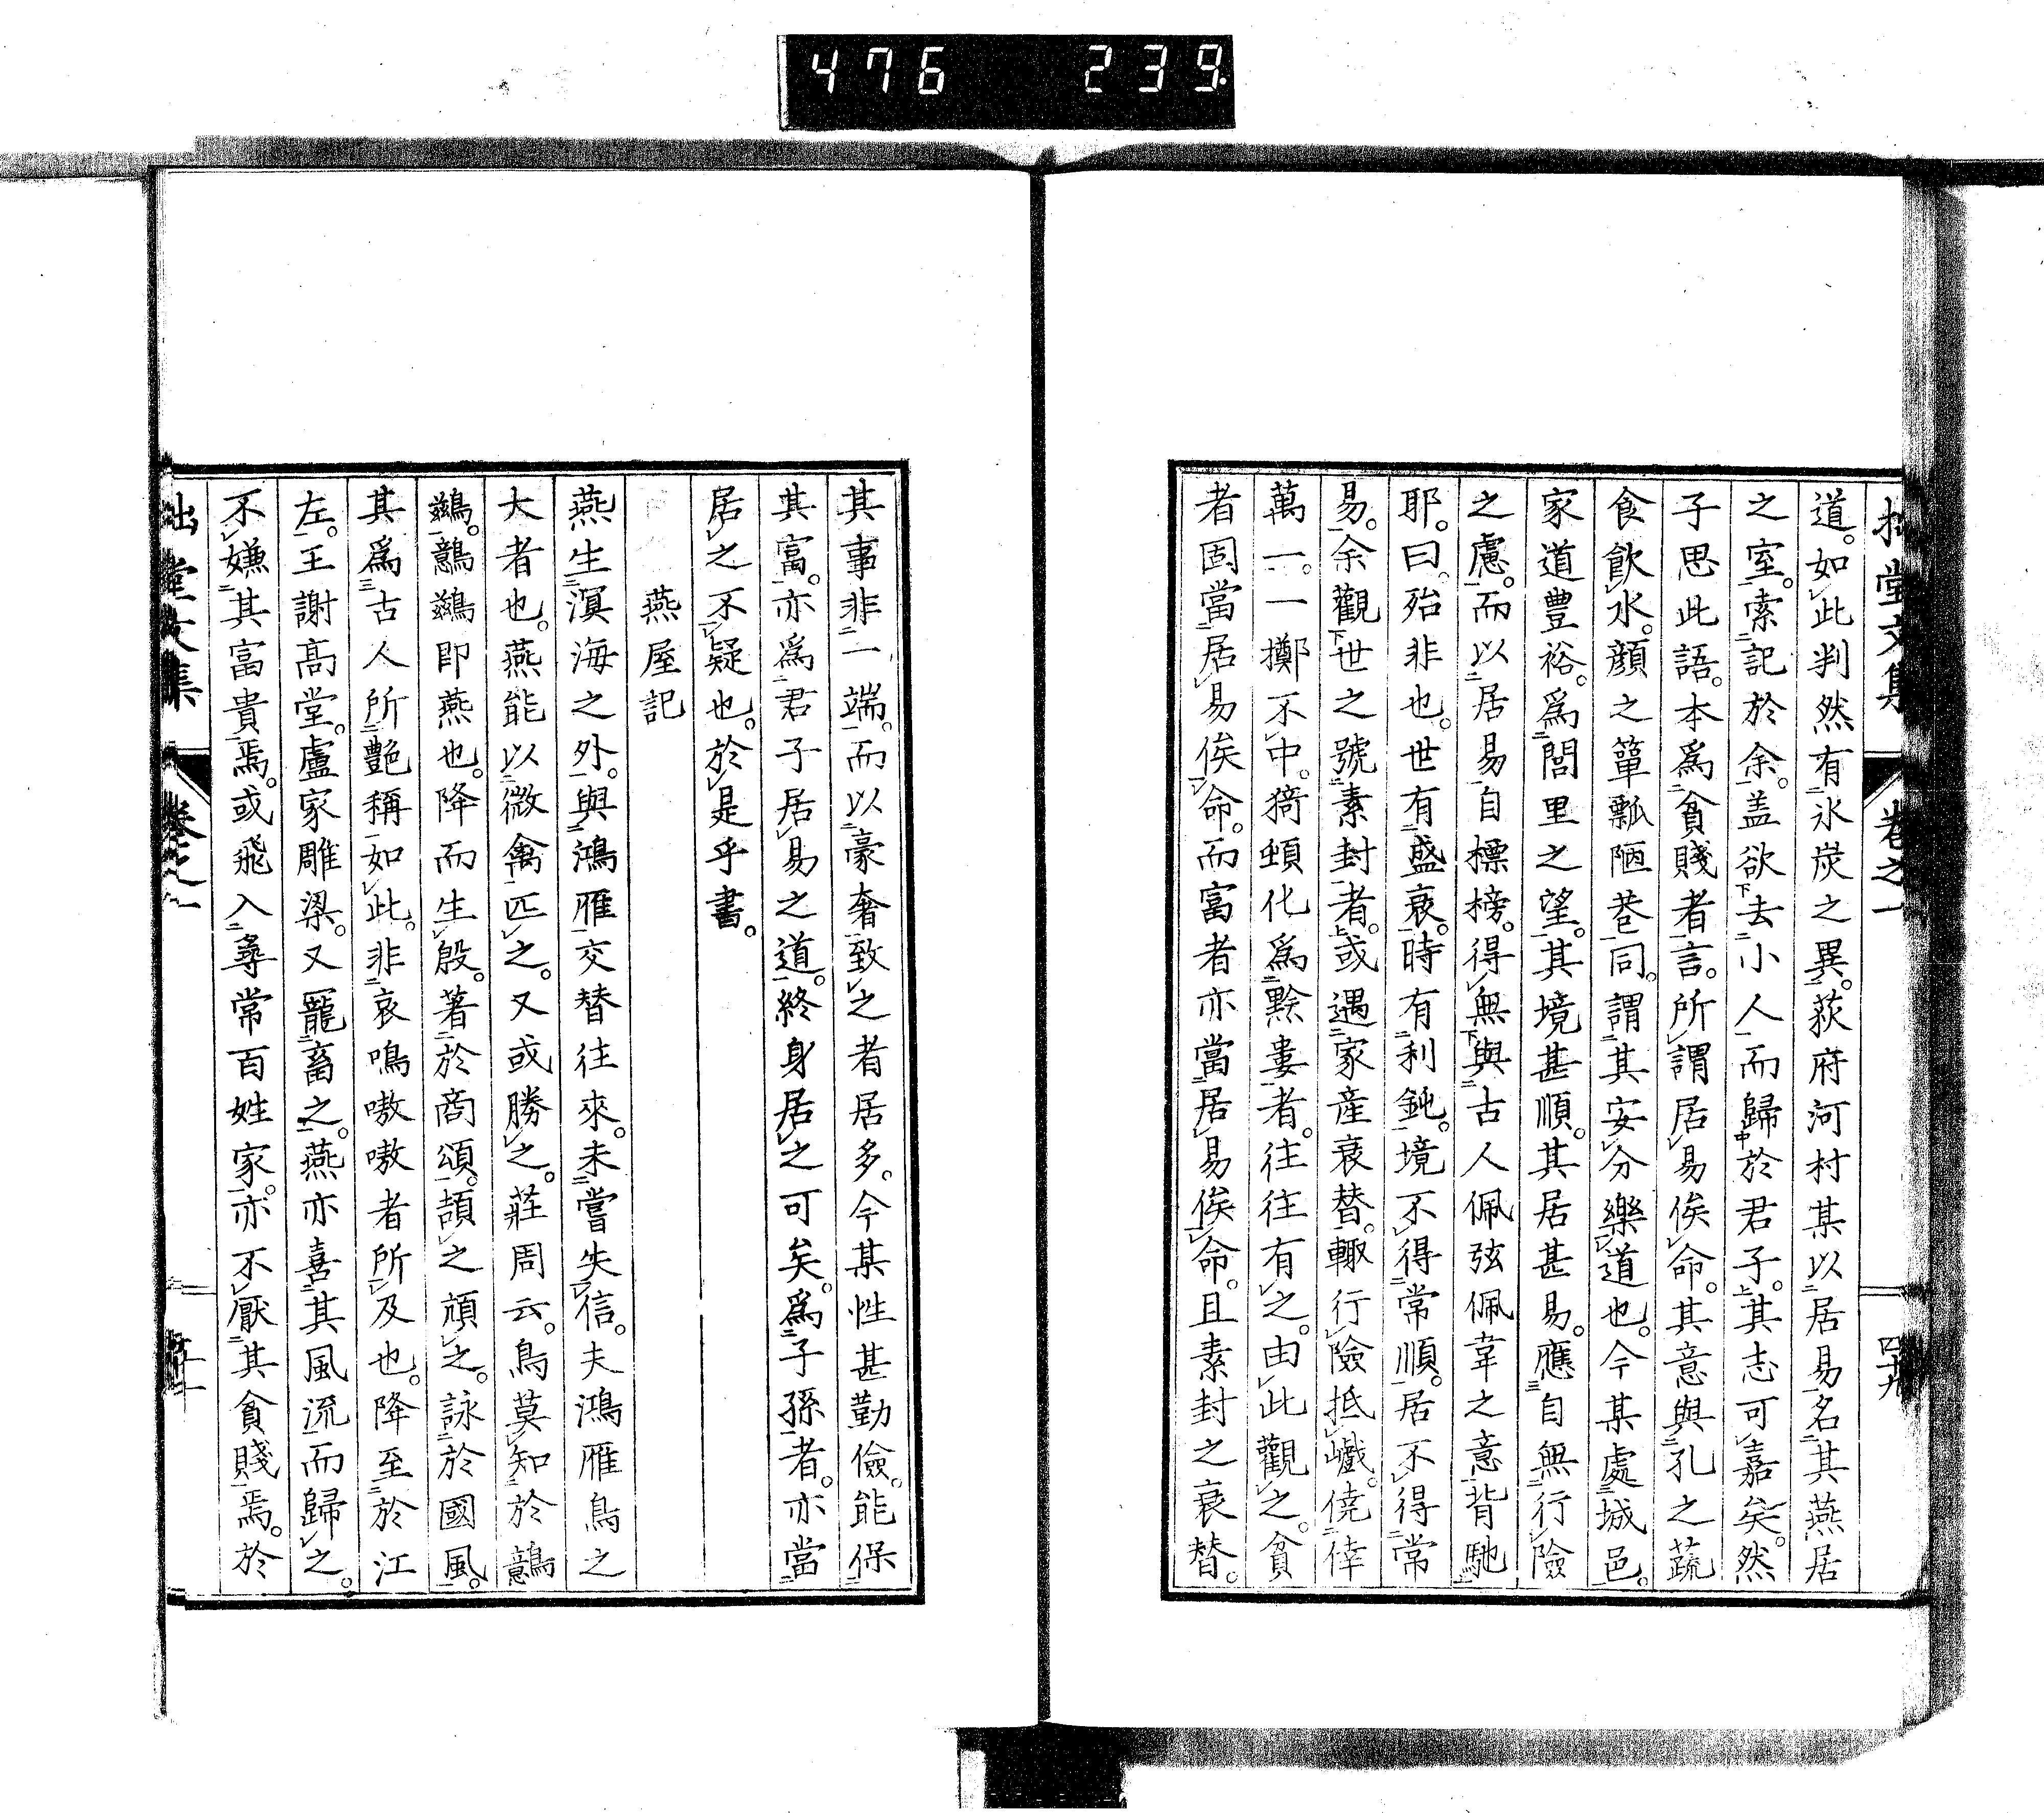 476 239
拙堂文集 卷之一 四十九
道。如此判然有氷炭之異。荻府河村某以居易名其燕居
之室。索記於余。盖欲去小人而歸於君子。其志可嘉矣。然
子思此語。本爲貧賤者言。所謂居易俟命。其意與孔之蔬
食飲水。顔之簞瓢陋巷同。謂其安分樂道也。今某處城邑。
家道豐裕。爲閭里之望。其境甚順。其居甚易。應自無行險
之慮。而以居易自標榜。得無與古人佩弦佩韋之意背馳
耶。曰。殆非也。世有盛衰。時有利鈍。境不得常順。居不得常
易。余觀世之號素封者。或遇家産衰替。輙行險抵巇。僥倖
萬一。一擲不中。猗頓化爲黔婁者。往往有之。由此觀之。貧
者固當居易俟命。而富者亦當居易俟命。且素封之衰替。
其事非一端。而以豪奢致之者居多。今某性甚勤儉。能保
其富。亦爲君子居易之道。終身居之可矣。爲子孫者。亦當
居之不疑也。於是乎書。
燕屋記
燕生溟海之外。與鴻雁交替往來。未嘗失信。夫鴻雁鳥之
大者也。燕能以微禽匹之。又或勝之。莊周云。鳥莫知於鷾
鷀。鷾鷀即燕也。降而生殷。著於商頌。頡之頏之。詠於國風。
其爲古人所艷稱如此。非哀鳴嗷嗷者所及也。降至於江
左。王謝高堂。盧家雕梁。又寵畜之。燕亦喜其風流而歸之。
不嫌其富貴焉。或飛入尋常百姓家。亦不厭其貧賤焉。於
拙堂文集 卷之一